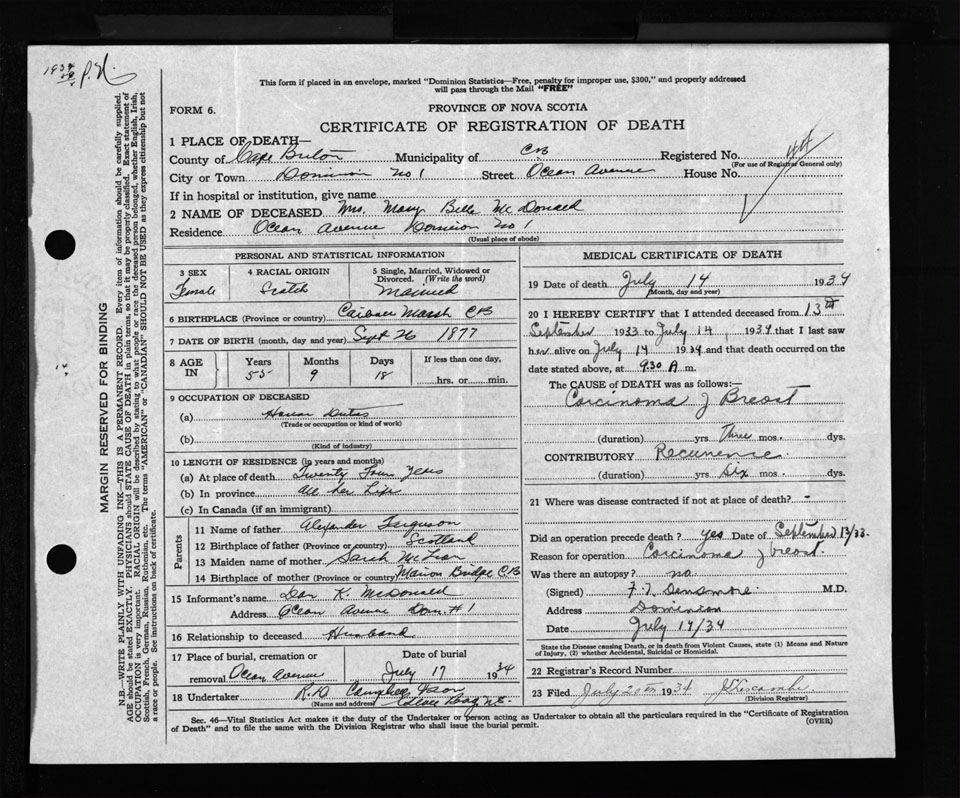 1934
P.N.
This form if placed in an envelope, marked "Dominion Statistics—Free, penalty for improper use, $300," and properly addressed
will pass through the Mail "FREE"
FORM 6.
PROVINCE OF NOVA SCOTIA
CERTIFICATE OF REGISTRATION OF DEATH
1 PLACE OF DEATH—
County of Cape Breton Municipality of CB Registered No. 44
(For use of Registrar General only)
City or Town Dominion No 1 Street Ocean Avenue House No.
If in hospital or institution, give name
2 NAME OF DECEASED Mrs. Mary Belle McDonald
Residence Ocean Avenue Dominion No 1
(Usual place of abode)
PERSONAL AND STATISTICAL INFORMATION
3 SEX Female
4 RACIAL ORIGIN Scotch
5 Single, Married, Widowed or
Divorced. (Write the word)
Married
6 BIRTHPLACE (Province or country) Caribou Marsh CB
7 DATE OF BIRTH (month, day and year) Sept 26 1877
8 AGE IN Years 55 Months 9 Days 18 If less than one day, hrs. or min.
9 OCCUPATION OF DECEASED
(a) House Duties
(Trade or occupation or kind of work)
(b)
(Kind of industry)
10 LENGTH OF RESIDENCE (in years and months)
(a) At place of death Twenty Four Years
(b) In province all her Life
(c) In Canada (if an immigrant)
Parents
11 Name of father Alexander Ferguson
12 Birthplace of father (Province or country) Scotland
13 Maiden name of mother Sarah McLean
14 Birthplace of mother (Province or country) Marion Bridge CB
15 Informant's name Dan K. McDonald
Address Ocean Avenue Dom. #1
16 Relationship to deceased Husband
17 Place of burial, cremation or
removal Ocean Avenue
Date of burial
July 17 1934
18 Undertaker
(Name and address) Glace Bay N.S.
MEDICAL CERTIFICATE OF DEATH
19 Date of death July 14 1934
(Month, day and year)
20 I HEREBY CERTIFY that I attended deceased from 13th
September 1933 to July 14, 1934 that I last saw
her alive on July 14 1934 and that death occurred on the
date stated above, at 9.30 A m.
The CAUSE of DEATH was as follows:—
Carcinoma of Breast
(duration) yrs Three mos. dys.
CONTRIBUTORY Recurrence
(duration) yrs Six mos. dys.
21 Where was disease contracted if not at place of death? -
Did an operation precede death? yes Date of September 13/33.
Reason for operation Carcinoma of breast.
Was there an autopsy? no
(Signed) Densmore M.D.
Address Dominion
Date July 14/34
State the Disease causing Death, or in death from Violent Causes, state (1) Means and Nature
of Injury, (2) whether Accidental, Suicidal or Homicidal.
22 Registrar's Record Number
23 Filed July 20th 1934
(Division Registrar)
Sec. 46—Vital Statistics Act makes it the duty of the Undertaker or person acting as Undertaker to obtain all the particulars required in the "Certificate of Registration
of Death" and to file the same with the Division Registrar who shall issue the burial permit.
(OVER)
MARGIN RESERVED FOR BINDING
N.B.—WRITE PLAINLY WITH UNFADING INK—THIS IS A PERMANENT RECORD. Every item of information should be carefully supplied.
AGE should be stated EXACTLY. PHYSICIANS should STATE CAUSE OF DEATH in plain terms, so that it may be properly classified. Exact statement of
OCCUPATION is very important. RACIAL ORIGIN will be described by stating to what people or race the deceased person belonged, whether English, Irish,
Scottish, French, German, Russian, Ruthenian, etc. The terms "AMERICAN" or "CANADIAN" SHOULD NOT BE USED as they express citizenship but not
a race or people. See instructions on back of certificate.